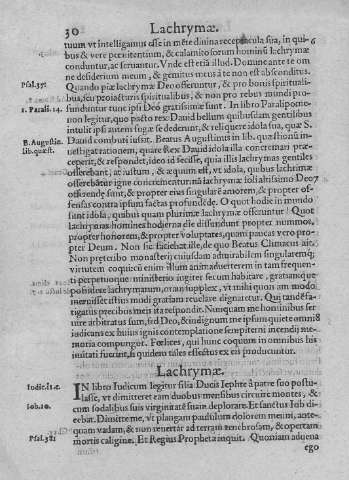 30 Lachrymæ.
tuum vt intelligamus esse in mēte diuina receptacula sira, in qui-6
bus & vere pœnitentium, & calamitosorum hominū lachrymæ
conduntur, ac seruantur. Vnde est etiā illud. Domine ante te om
ne desiderium meum, & gemitus meus à te non est absconditus.
Psal.37.
Quando piæ lachrymæ Deo offeruntur, & pro bonis spirituali-
bus, seu pro iacturis spiritualibus, & non pro rebus mundi pro-
1. Parali. 14. funduntur tunc ipsi Deo gratissimæ sunt. In libro Paralipome-
non legitur, quo pacto rex Dauid bellum quibusdam gentilibus
intulit ipsi autem fugæ se dederunt, & reliquere idola sua, quæ S.
B. Augustin. Dauid comburi iussit. Beatus Augustinus in lib. quæstionū in-
lib.quæst. uestigat rationem, quare Rex Dauid idola illa concremari præ-
ceperit, & respondet, ideo id fecisse, quia illis lachrymas gentiles
offerebant, at iustum, & æquum est, vt idola, quibus lachrimæ
offerebātur igne concrementur. nā lachrymæ soli altissimo Deo 7
offerende sunt, & propter eius singularē amorem, & propter of-
fensas contra ipsum factas profundēde. O quot hodie in mundo
sunt idola, quibus quam plurimæ lachrymæ offeruntur! Quot
lachrymas homines hodierna die diffundunt propter nummos,
propter honorem, & propter voluptates, quam paucas vero pro-
pter Deum. Non sic faciebat ille, de quo Beatus Climacus ait.
Non preteribo monasterij cuiusdam admirabilem singularemq;
virtutem coquirīum enim illum animaduerterem in tam frequen-
ti perpetuoque ministerio iugiter secum habitare, gratiamque
possidere lachrymarum, oraui supplex, vt mihi quon am modo
meruisset istius modi gratiam reuelare dignaretur. Qui tandē fa-
tigatus precibus meis ita respondit. Nunquam me hominibus ser
uire arbitratus sum, sed Deo, & indignum me ipsum quiete omni 8
iudicans ex huius ignis contemplatione sempiterni incendij me-
moria compungor. Fœlices, qui hunc coquum in omnibus his
imitati fuerint, si quidem tales effectus ex eis producuntur.
Lachrymæ.
Iudic.11.c. IN libro Iudicum legitur filia Ducis Iephte à patre suo postu-
lasse, vt dimitteret eam duobus mensibus circuire montes, &
Iob.10. cum sodalibus suis virginitatē suam deplorare. Et sanctus Iob di-
cebat. Dimitte me, vt plangam paululum dolorem meum, ante-
quam vadam, & non reuertar ad terram tenebrosam, & opertam
Psal.38. mortis caligine. Et Regius Propheta inquit. Quoniam aduena
ego